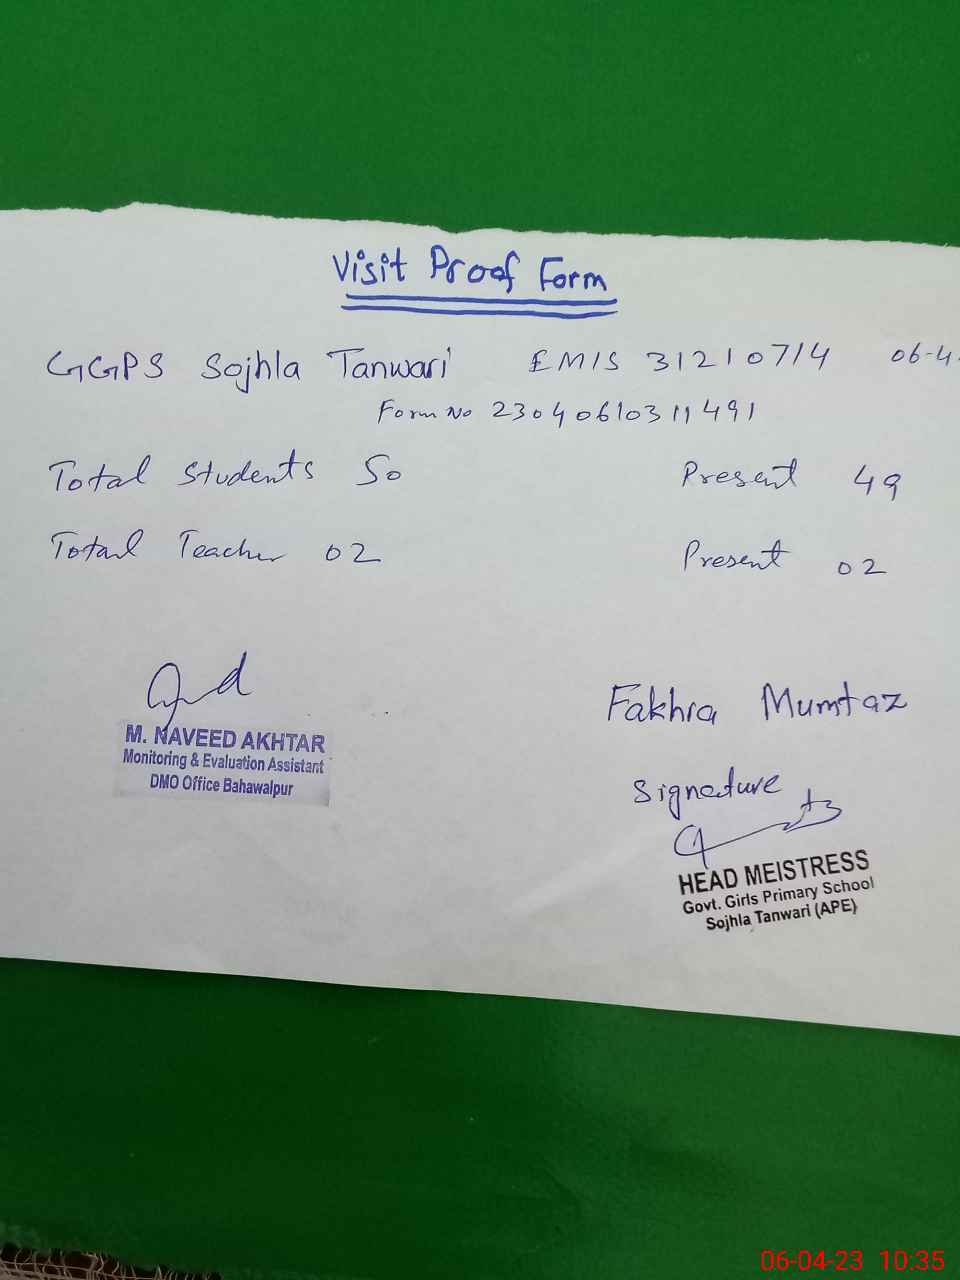 Visit Proof Form
GGPS Sojhla Tanwari EMIS 31210714 06-4
Form No 23040610311491
Total Students 50 Present 49
Total Teacher 02 Present 02
M. NAVEED AKHTAR
Monitoring & Evaluation Assistant
DMO Office Bahawalpur
Fakhra Mumtaz
Signature
HEAD MEISTRESS
Govt. Girls Primary School
Sojhla Tanwari (APE)
06-04-23 10:35